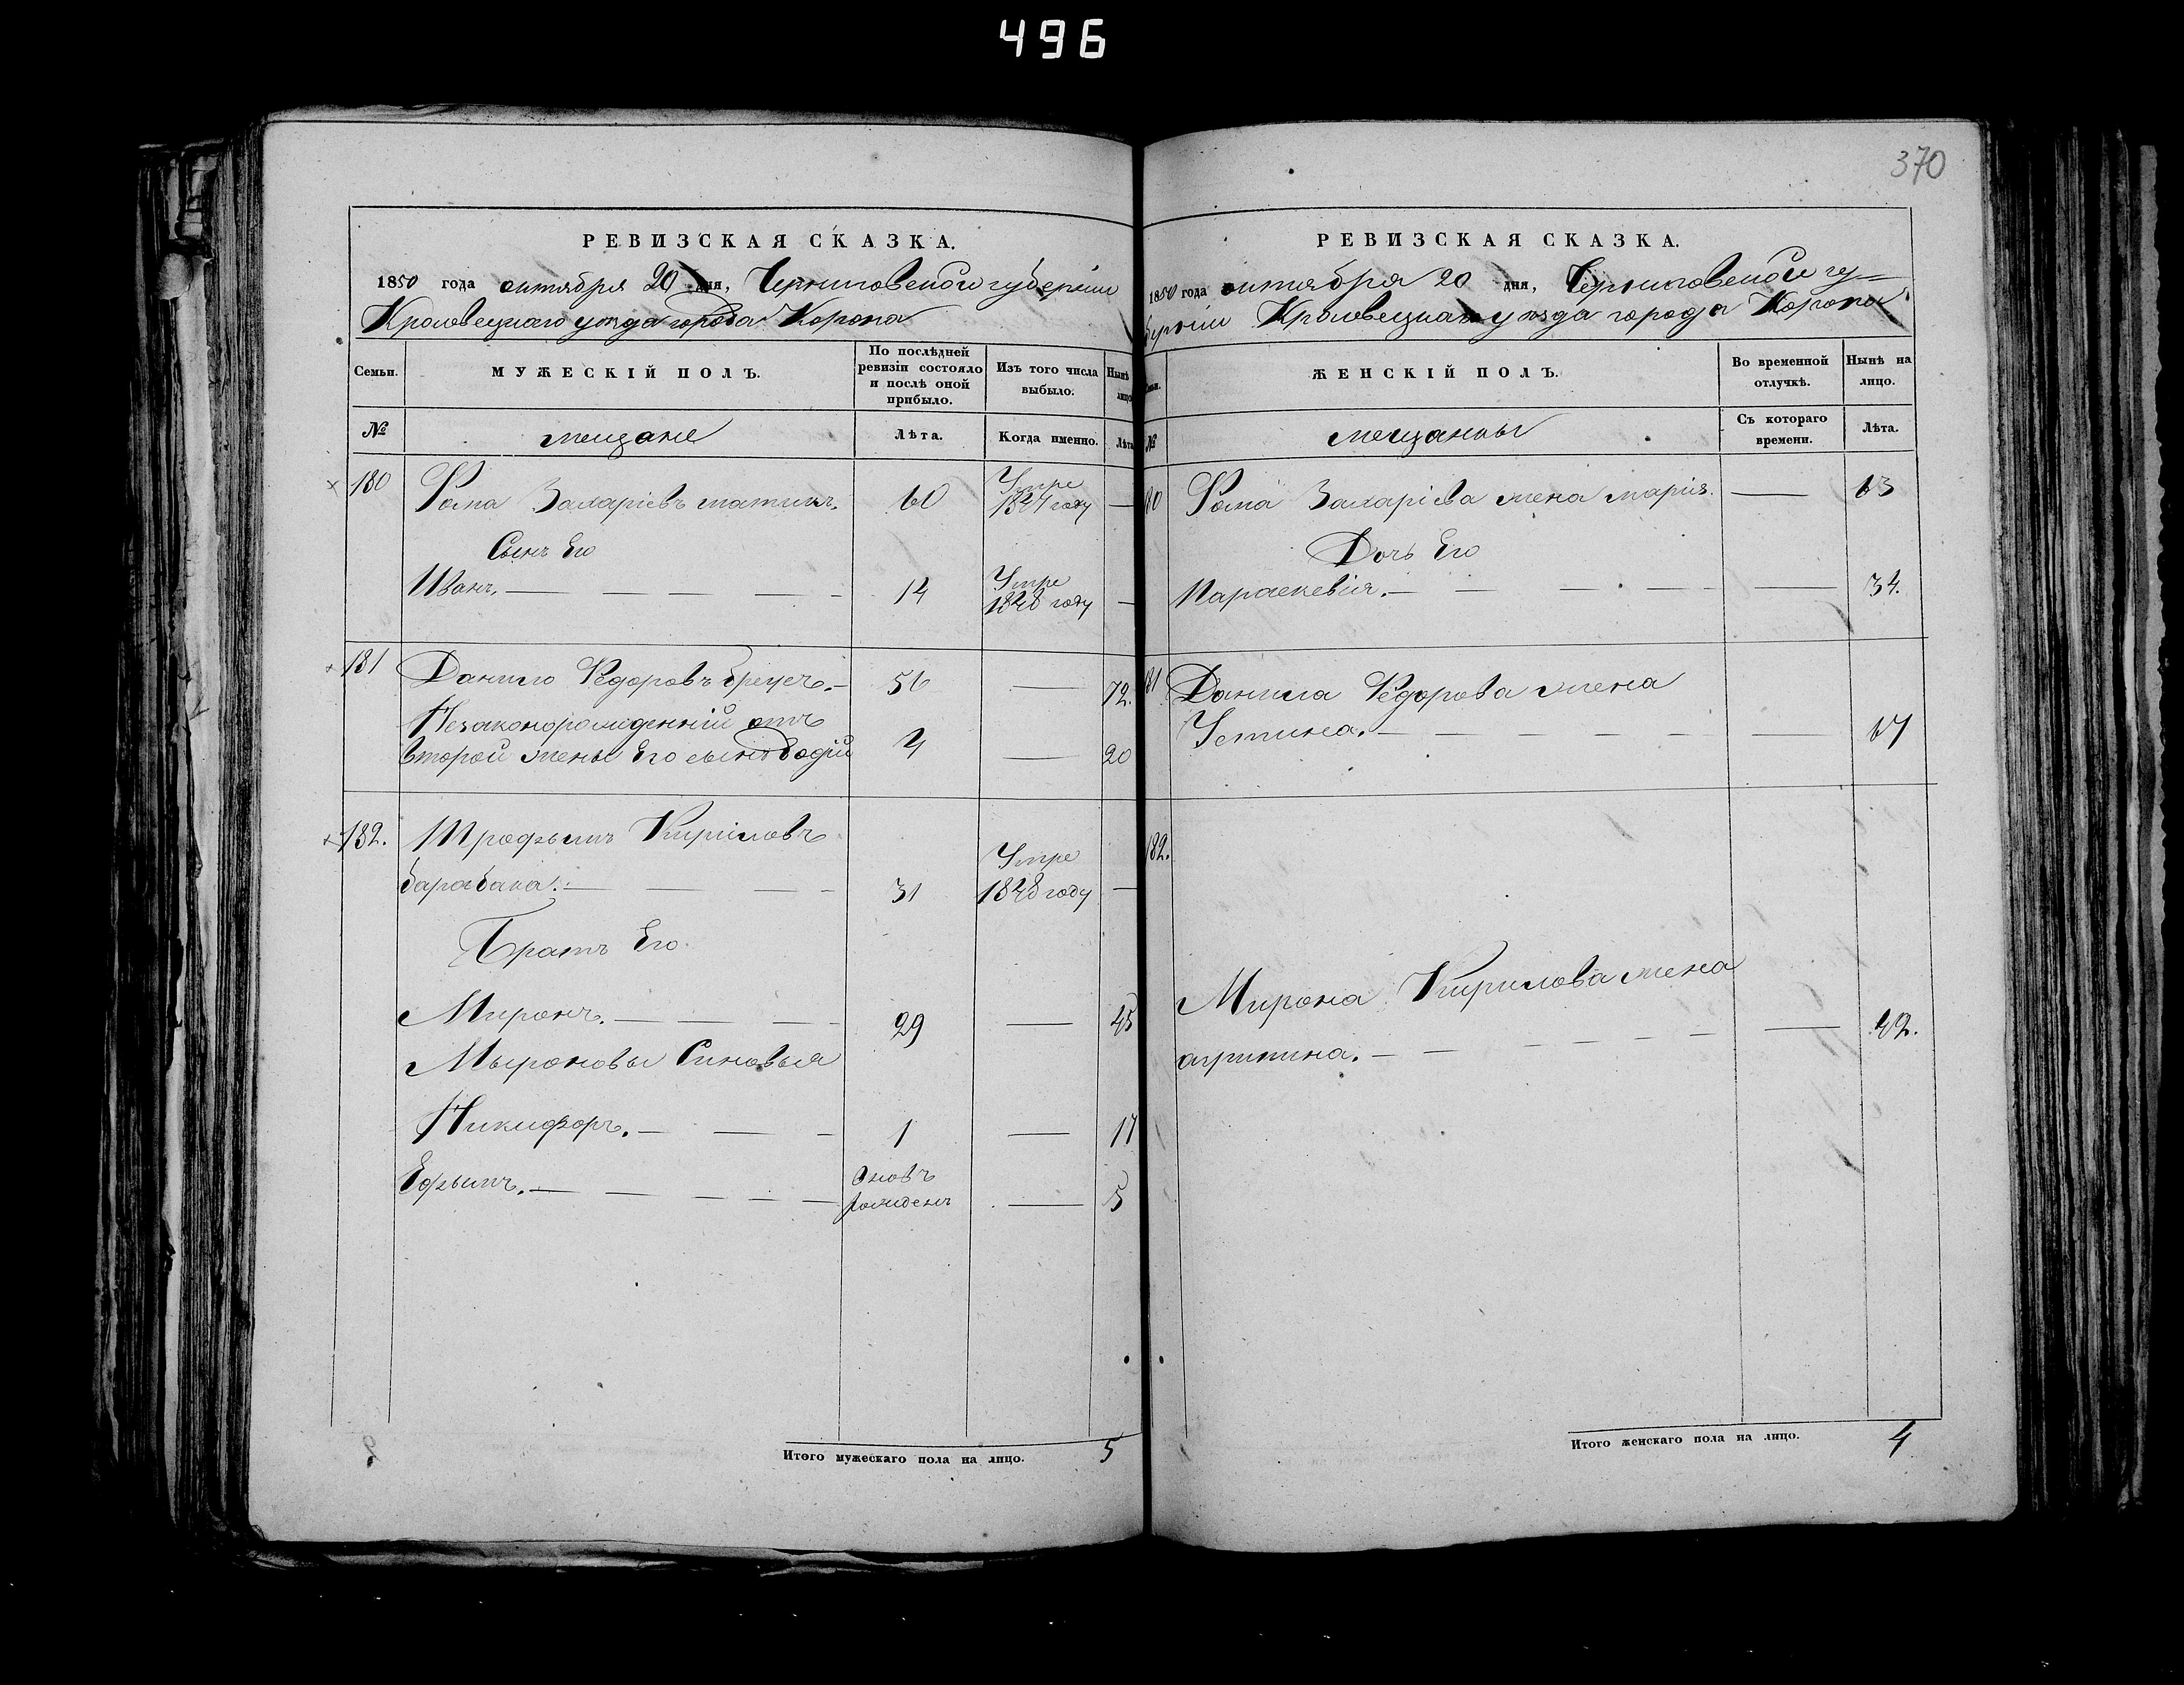 496
370
РЕВИЗСКАЯ СКАЗКА.
1850 года октября 20 дня, Черниговской губерніи
Кролевецкаго уезда города Коропа
Семьи.
МУЖЕСКІЙ ПОЛЪ.
По послѣдней ревизіи состояло и послѣ оной прибыло.
Изъ того числа выбыло.
Нынѣ лицо
№
мещане
Лѣта.
Когда именно.
Лѣта
180 Фома Захаріевъ 60 Умре 184 году —
Сынъ Его
Иванъ. — 14 Умре 1848 году —
181 Данило Федоровъ — 56 — 72.
Незаконорожденній отъ
второй жены Его сынъ 4 — 20
182. Трофымъ Кириловъ
барабака. — 31 Умре 1848 году —
Братъ Его
Миронъ. — 29 — 45
Мыроновы Синовья
Никифоръ. — 1 — 17
Ефымъ. — вновъ рожденъ — 5
Итого мужескаго пола на лицо. 5
РЕВИЗСКАЯ СКАЗКА.
1850 года октября 20 дня, Черниговской гу=
берніи Кролевецкаго уезда города Коропа
№
ЖЕНСКІЙ ПОЛЪ.
Во временной отлучкѣ.
Нынѣ на лицо.
мещанкы
Съ котораго времени.
Лѣта.
80 Фома Захаріева жена марія. — 63
Дочь Его
Параскевія. — — 34.
81 Данила Федорова жена
Устина. — — 67
182.
Мирона Кирилова жена
агрипина. — — 42.
Итого женскаго пола на лицо. 4